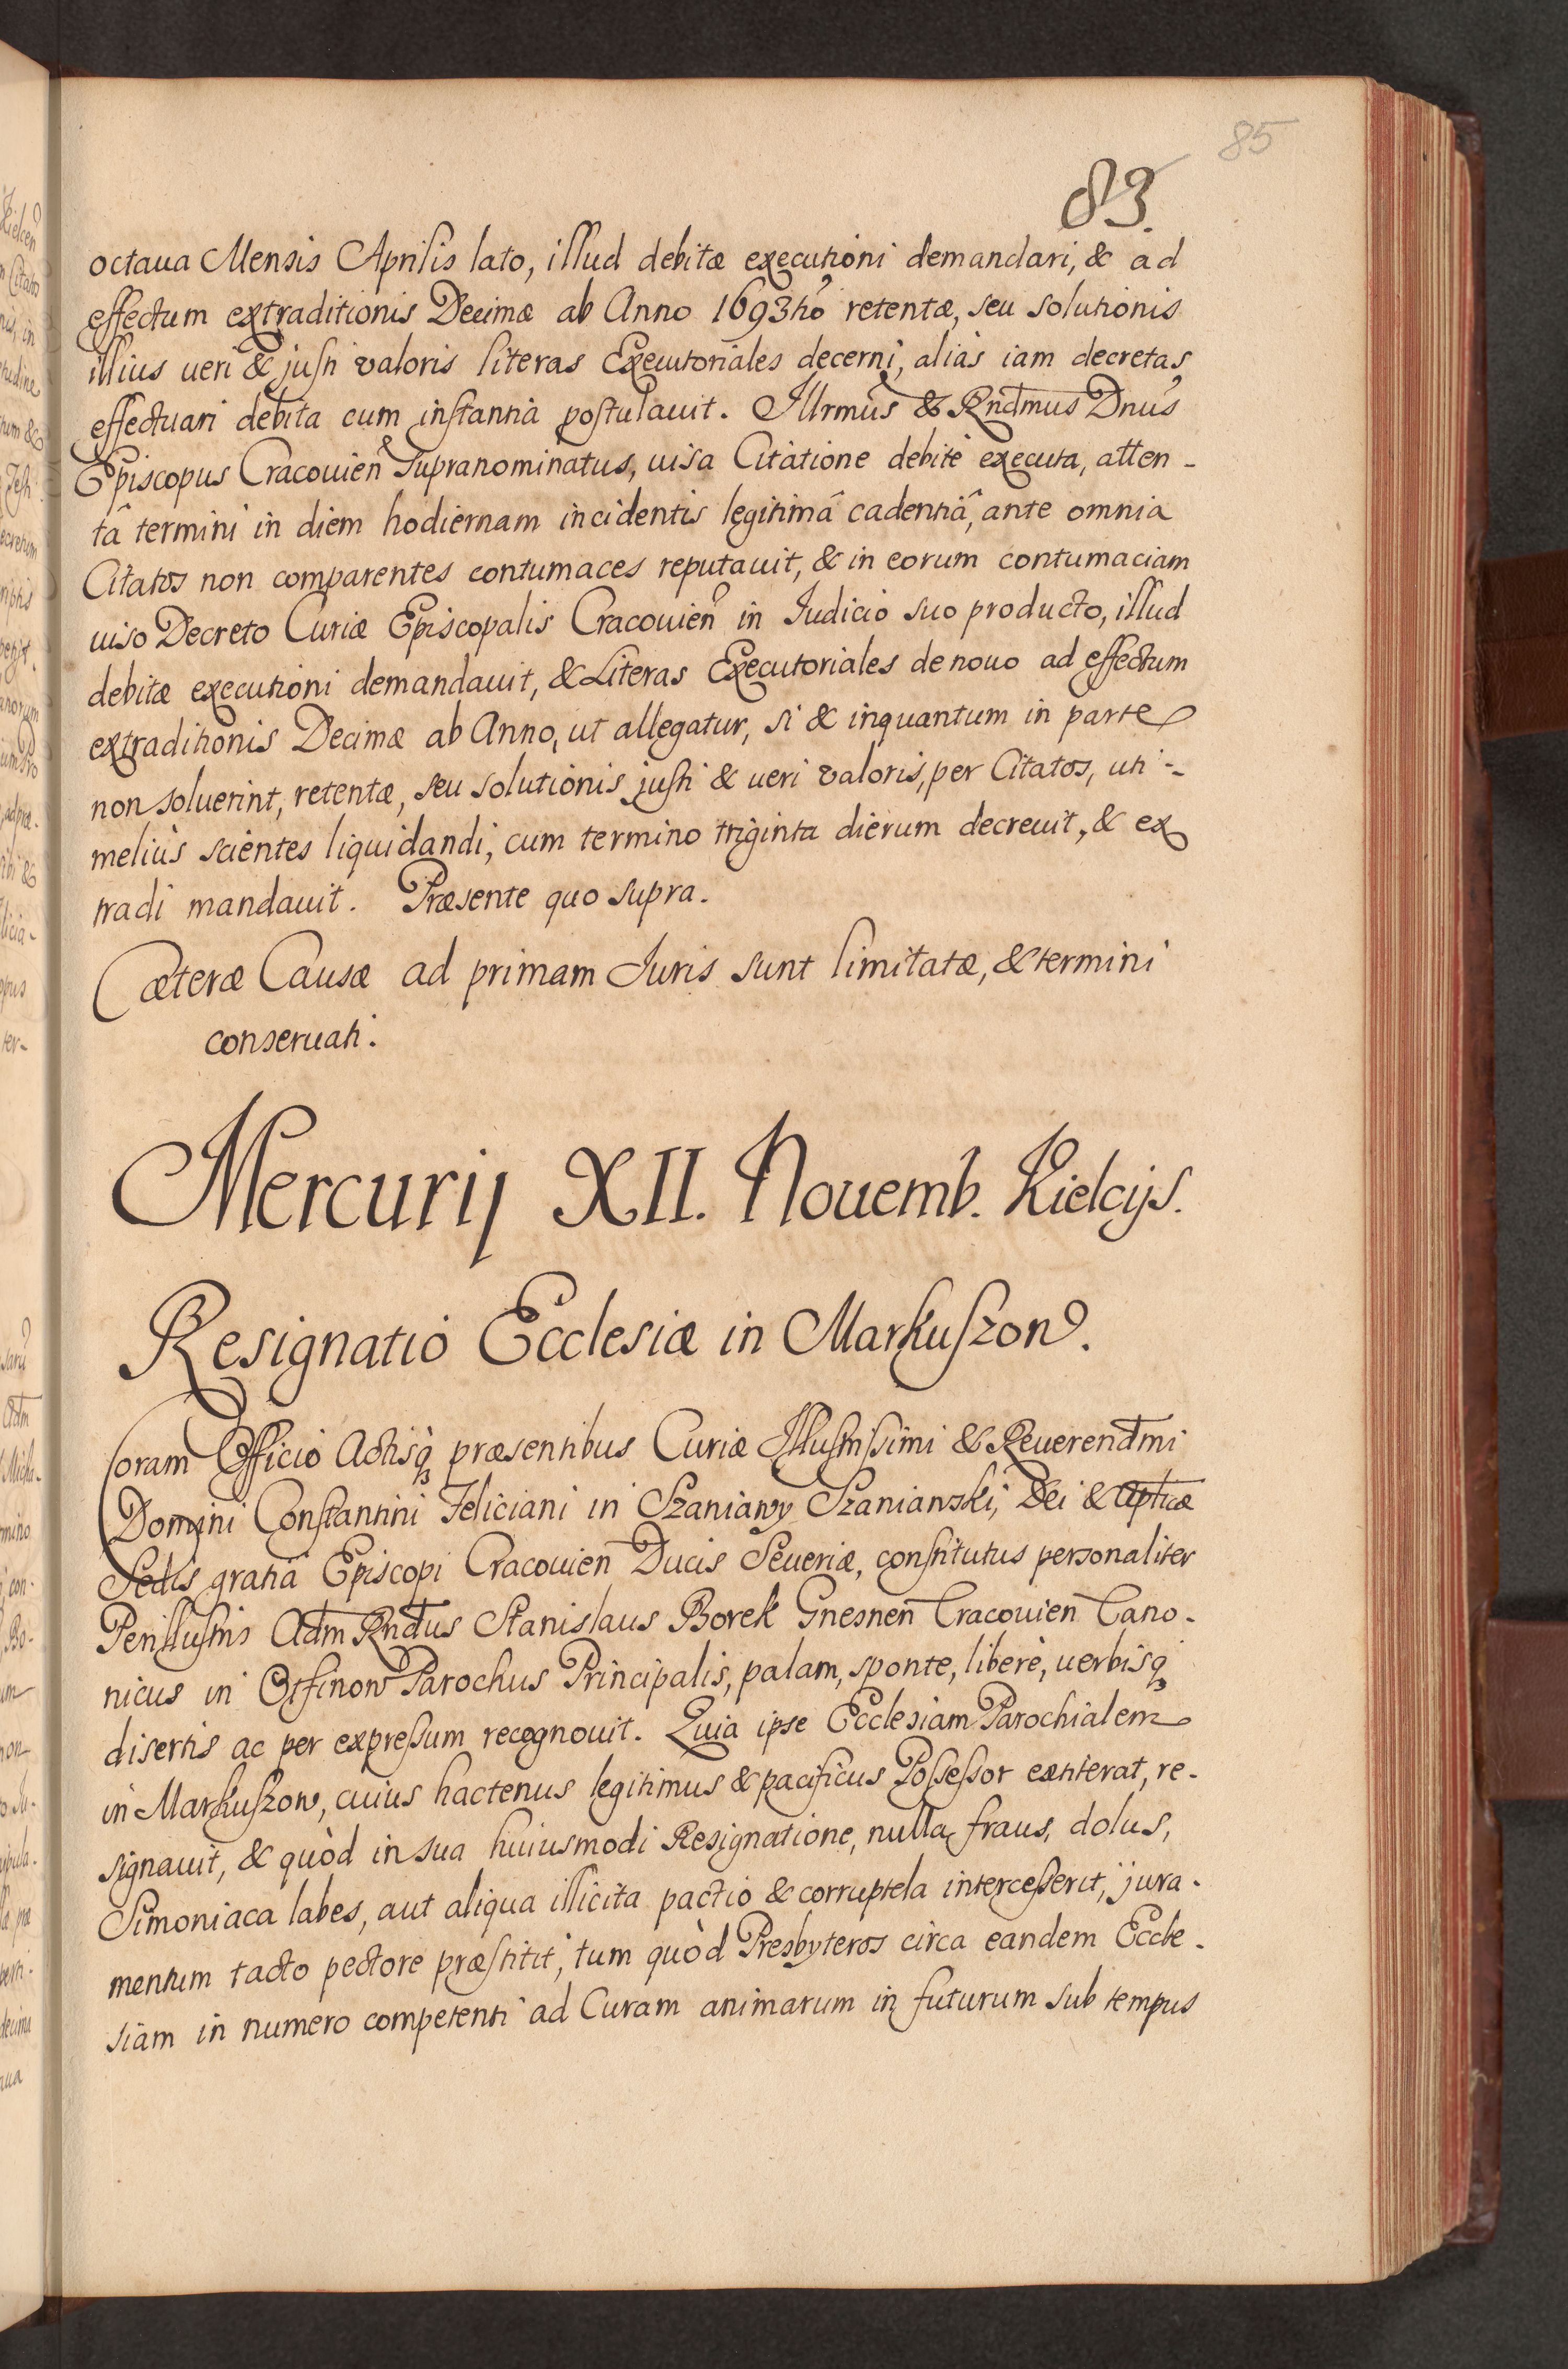 85
83.
octaua Mensis Aprilis lato, illud debitæ executioni demandari, & ad
effectum extraditionis Decimæ ab Anno 1693tio retentæ, seu solutionis
illius ueri & justi valoris literas Executoriales decerni, aliàs iam decretas
effectuari debita cum instantia postulauit. Illrmus & Rndmus Dnus
Episcopus Cracouien Supranominatus, uisa Citatione debitè executa, atten-
tâ termini in diem hodiernam incidentis legitimâ cadentiâ, ante omnia
Citatos non comparentes contumaces reputauit, & in eorum contumaciam
uiso Decreto Curiæ Episcopalis Cracouien in Iudicio suo producto, illud
debitæ executioni demandauit, & Literas Executoriales de nouo ad effectum
extraditionis Decimæ ab Anno, ut allegatur, si & inquantum in parte
non soluerint, retentæ, seu solutionis justi & ueri valoris, per Citatos, uti-
meliùs scientes liquidandi, cum termino triginta dierum decreuit, & ex
tradi mandauit. Præsente quo supra.
Cæteræ Causæ ad primam Iuris sunt limitatæ, & termini
conseruati.
Mercurij XII. Nouemb. Kielcijs.
Resignatio Ecclesiæ in Markuszow.
Coram Officio Actisq præsentibus Curiæ Illustrissimi & Reuerendmi
Domini Constantini Feliciani in Szaniawy Szaniawski, Dei & Aplicæ
Sedis gratia Episcopi Cracouien Ducis Seueriæ, constitutus personaliter
Perillustris Adm Rndus Stanislaus Borek Gnesnen Cracouien Cano-
nicus in Otfinow Parochus Principalis, palam, sponte, liberè, uerbisq
disertis ac per expressum recognouit. Quia ipse Ecclesiam Parochialem
in Markuszow, cuius hactenus legitimus & pacificus Possessor extiterat, re-
signauit, & quòd in sua huiusmodi Resignatione, nulla fraus, dolus,
Simoniaca labes, aut aliqua illicita pactio & corruptela intercesserit, jura-
mentum tacto pectore præstitit, tum quòd Presbyteros circa eandem Eccle-
siam in numero competenti ad Curam animarum in futurum sub tempus